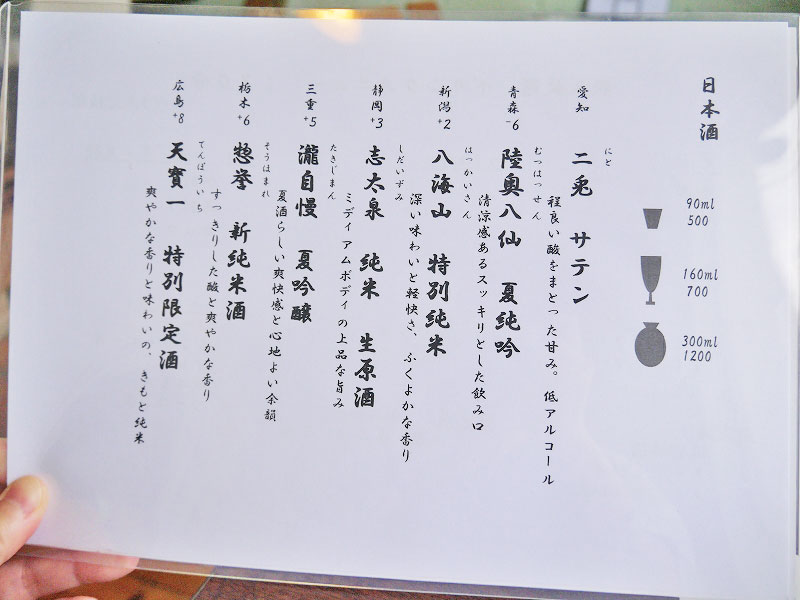 日本酒
90ml
500
160ml
700
300ml
1200
愛知
にと
二兎 サテン
程良い酸をまとった甘み。低アルコール
青森
-6
むつはっせん
陸奥八仙 夏純吟
清涼感あるスッキリとした飲み口
新潟
+2
はっかいさん
八海山 特別純米
深い味わいと軽快さ、ふくよかな香り
静岡
+3
しだいずみ
志太泉 純米 生原酒
ミディアムボディの上品な旨み
三重
+5
たきじまん
瀧自慢 夏吟醸
夏酒らしい爽快感と心地よい余韻
栃木
+6
そうほまれ
惣誉 新純米酒
すっきりした酸と爽やかな香り
広島
+8
てんぽういち
天寶一 特別限定酒
爽やかな香りと味わいの、きもと純米